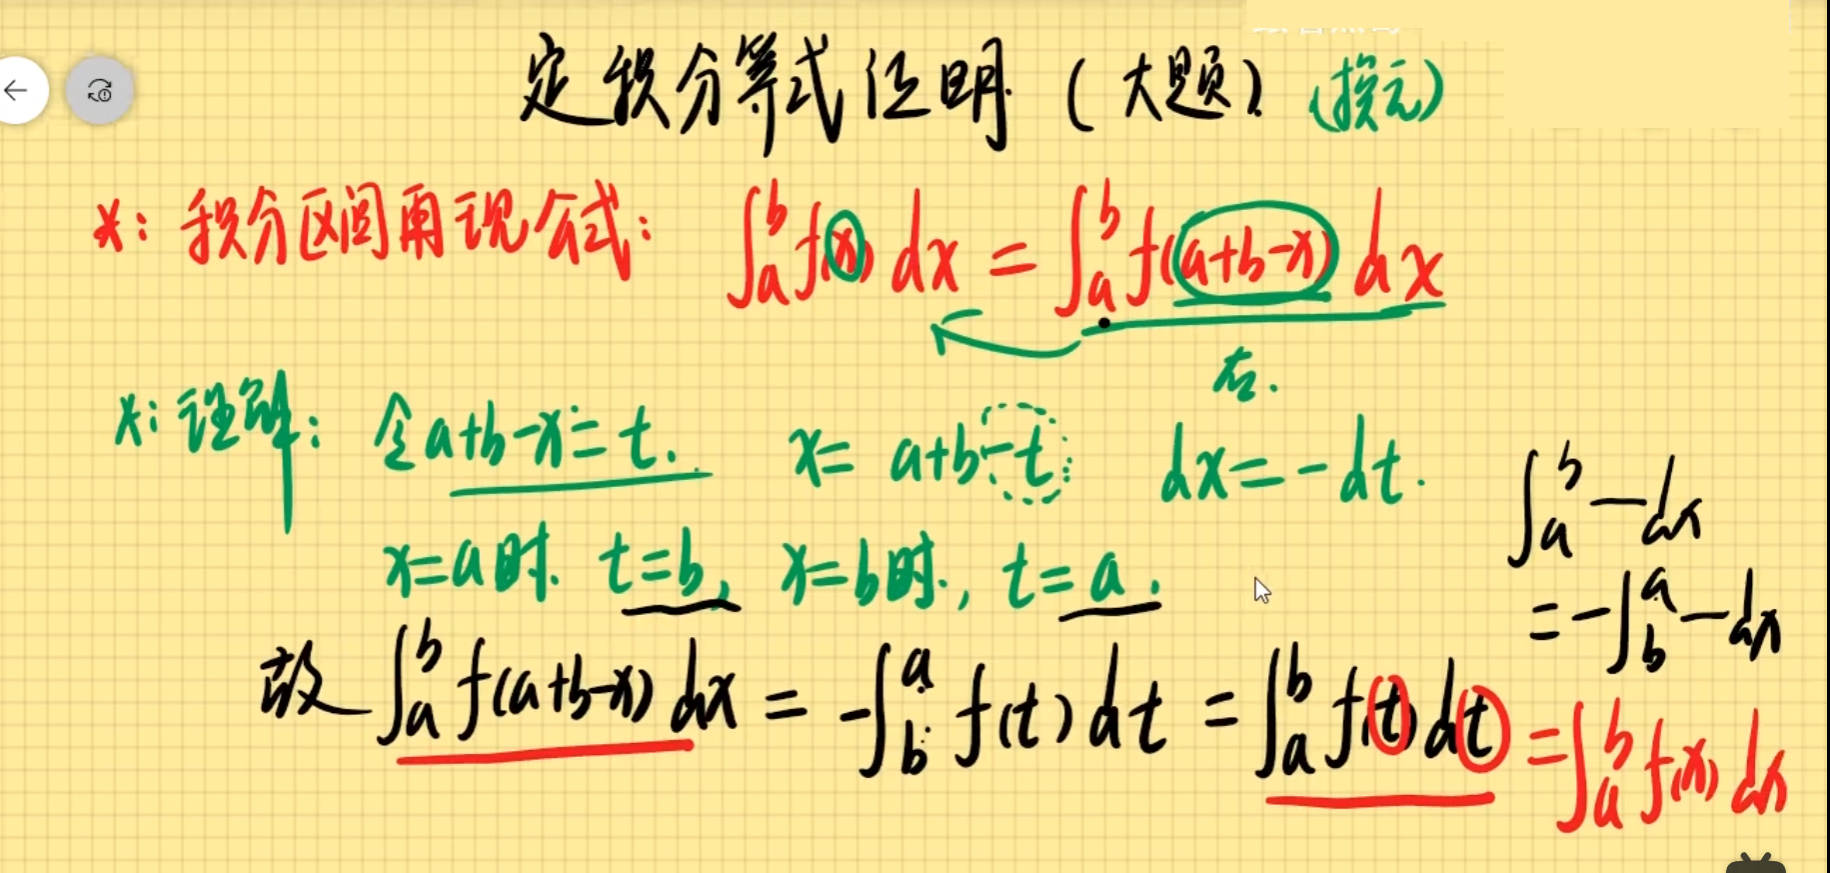 定积分等式证明（大题）（换元）
*：积分区间再现公式：∫_a^b f(x) dx = ∫_a^b f(a+b-x) dx
右.
*：理解：令 a+b-x=t. x= a+b-t dx=-dt.
∫_a^b -dx
x=a时. t=b, x=b时., t=a.
= -∫_b^a -dx
故 ∫_a^b f(a+b-x) dx = -∫_b^a f(t) dt = ∫_a^b f(t) dt = ∫_a^b f(x) dx